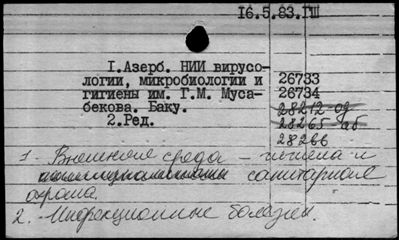 16.5.83.IШ
I.Азерб. НИИ вирусо-
логии, микробиологии и
гигиены им. Г.М. Муса-
бекова. Баку.
2.Ред.
26733
26734
28212-од
28265-аб
28266
1. Внешняя среда – гигиена и
санитарная
охрана.
2. Инфекционные болезни.